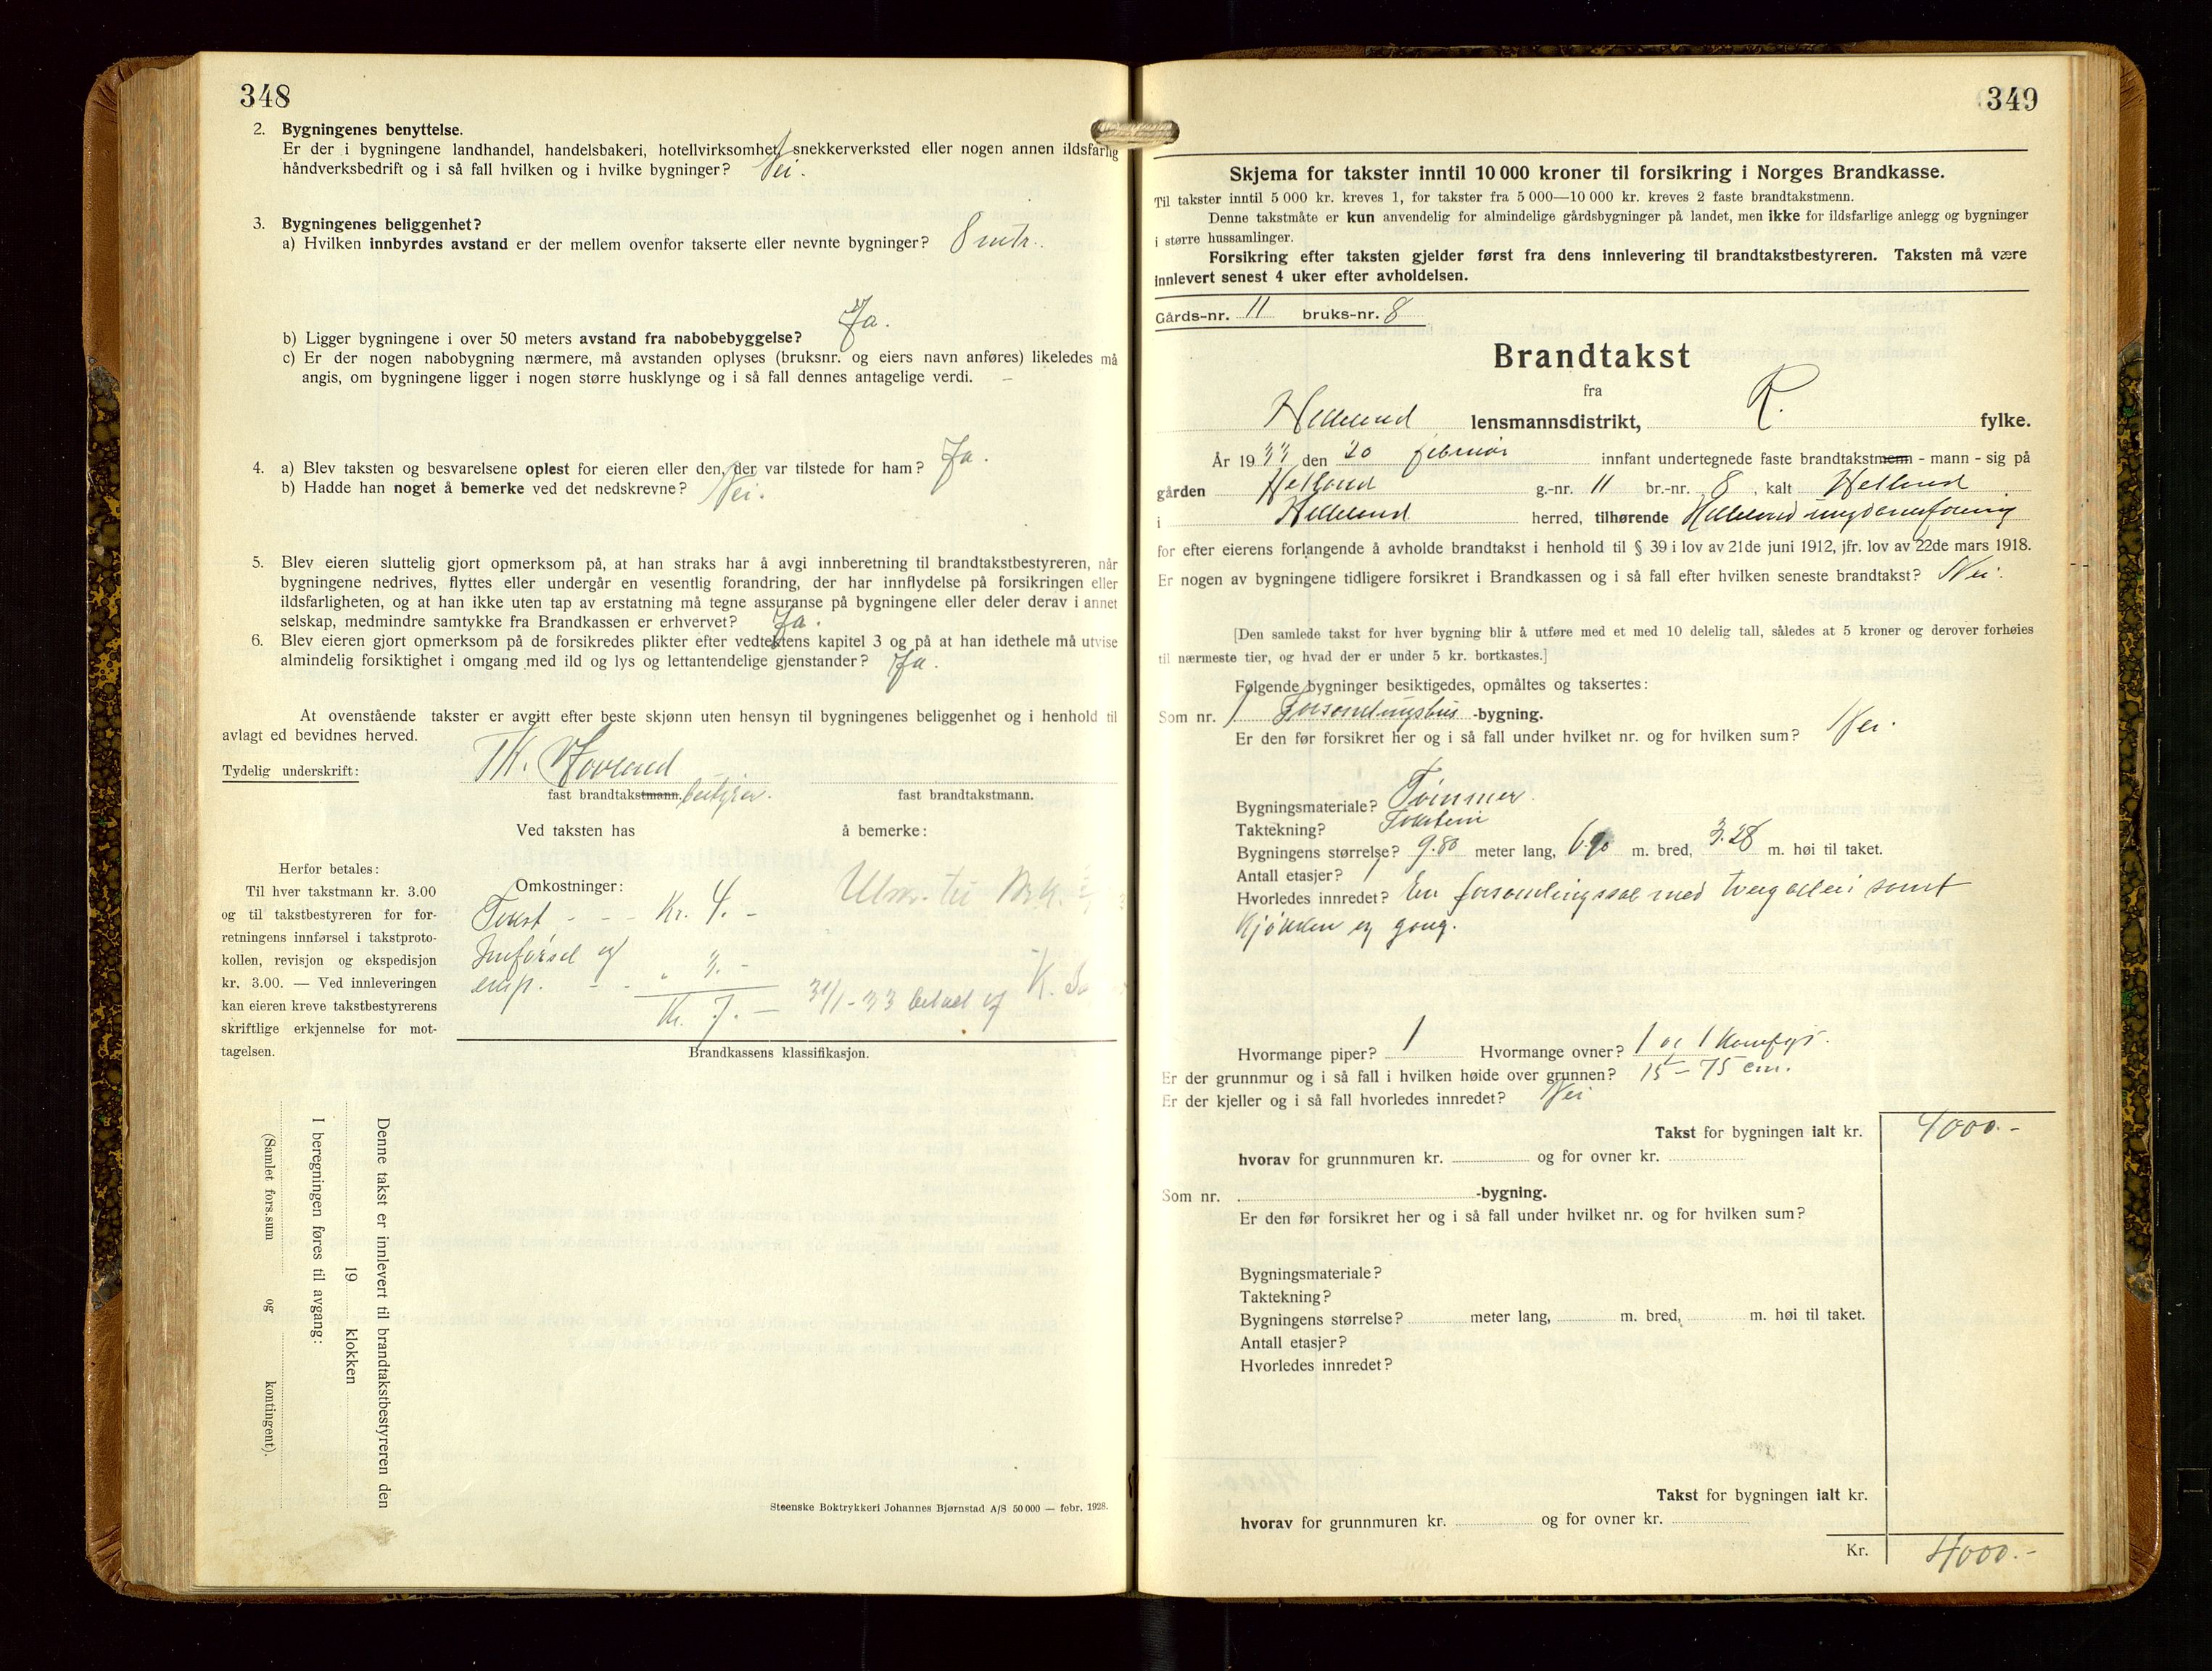 348
2. Bygningenes benyttelse.
Er der i bygningene landhandel, handelsbakeri, hotellvirksomhet, snekkerverksted eller nogen annen ildsfarlig
håndverksbedrift og i så fall hvilken og i hvilke bygninger? Nei.
3. Bygningenes beliggenhet?
a) Hvilken innbyrdes avstand er der mellem ovenfor takserte eller nevnte bygninger? 8 mtr.
b) Ligger bygningene i over 50 meters avstand fra nabobebyggelse? Ja.
c) Er der nogen nabobygning nærmere, må avstanden oplyses (bruksnr. og eiers navn anføres) likeledes må
angis, om bygningene ligger i nogen større husklynge og i så fall dennes antagelige verdi. —
4. a) Blev taksten og besvarelsene oplest for eieren eller den, der var tilstede for ham? Ja.
b) Hadde han noget å bemerke ved det nedskrevne? Nei.
5. Blev eieren sluttelig gjort opmerksom på, at han straks har å avgi innberetning til brandtakstbestyreren, når
bygningene nedrives, flyttes eller undergår en vesentlig forandring, der har innflydelse på forsikringen eller
ildsfarligheten, og at han ikke uten tap av erstatning må tegne assuranse på bygningene eller deler derav i annet
selskap, medmindre samtykke fra Brandkassen er erhvervet? Ja.
6. Blev eieren gjort opmerksom på de forsikredes plikter efter vedtektens kapitel 3 og på at han idethele må utvise
almindelig forsiktighet i omgang med ild og lys og lettantendelige gjenstander? Ja.
At ovenstående takster er avgitt efter beste skjønn uten hensyn til bygningenes beliggenhet og i henhold til
avlagt ed bevidnes herved.
Tydelig underskrift: Th. Hovland
fast brandtakstmann. bestyrer. fast brandtakstmann.
Ved taksten has å bemerke:
Herfor betales:
Til hver takstmann kr. 3.00
og til takstbestyreren for for-
retningens innførsel i takstproto-
kollen, revisjon og ekspedisjon
kr. 3.00. — Ved innleveringen
kan eieren kreve takstbestyrerens
skriftlige erkjennelse for mot-
tagelsen.
Omkostninger:
Takst - - - Kr. 4. -
Innførsel og
eksp. - - " 3. -
Kr. 7. -
31/1-33 betalt af K.
Brandkassens klassifikasjon.
Denne takst er innlevert til brandtakstbestyreren den
19 klokken
I beregningen føres til avgang:
(Samlet fors.sum og kontingent).
Steenske Boktrykkeri Johannes Bjørnstad A/S 50 000 — febr. 1928.
349
Skjema for takster inntil 10 000 kroner til forsikring i Norges Brandkasse.
Til takster inntil 5 000 kr. kreves 1, for takster fra 5 000—10 000 kr. kreves 2 faste brandtakstmenn.
Denne takstmåte er kun anvendelig for almindelige gårdsbygninger på landet, men ikke for ildsfarlige anlegg og bygninger
i større hussamlinger.
Forsikring efter taksten gjelder først fra dens innlevering til brandtakstbestyreren. Taksten må være
innlevert senest 4 uker efter avholdelsen.
Gårds-nr. 11 bruks-nr. 8
Brandtakst
fra
Helleland lensmannsdistrikt, R. fylke.
År 1933 den 20 februar innfant undertegnede faste brandtakstmenn - mann - sig på
gården Helland g.-nr. 11 br.-nr. 8, kalt Helland
i Helleland herred, tilhørende Helleland ungdomsforening
for efter eierens forlangende å avholde brandtakst i henhold til § 39 i lov av 21de juni 1912, jfr. lov av 22de mars 1918.
Er nogen av bygningene tidligere forsikret i Brandkassen og i så fall efter hvilken seneste brandtakst? Nei.
[Den samlede takst for hver bygning blir å utføre med et med 10 delelig tall, således at 5 kroner og derover forhøies
til nærmeste tier, og hvad der er under 5 kr. bortkastes.]
Følgende bygninger besiktigedes, opmåltes og taksertes:
Som nr. 1 Forsamlingshus -bygning.
Er den før forsikret her og i så fall under hvilket nr. og for hvilken sum? Nei.
Bygningsmateriale? Tømmer.
Taktekning? Takstein
Bygningens størrelse? 9.80 meter lang, 6.90 m. bred, 3.28 m. høi til taket.
Antall etasjer? 1
Hvorledes innredet? En forsamlingssal med tverg alleri samt
kjøkken og gang.
Hvormange piper? 1 Hvormange ovner? 1 og 1 komfyr.
Er der grunnmur og i så fall i hvilken høide over grunnen? 15 - 75 cm.
Er der kjeller og i så fall hvorledes innredet? Nei
Takst for bygningen ialt kr. 4000.-
hvorav for grunnmuren kr. og for ovner kr.
Som nr. -bygning.
Er den før forsikret her og i så fall under hvilket nr. og for hvilken sum?
Bygningsmateriale?
Taktekning?
Bygningens størrelse? meter lang, m. bred, m. høi til taket.
Antall etasjer?
Hvorledes innredet?
Takst for bygningen ialt kr.
hvorav for grunnmuren kr. og for ovner kr.
Kr. 4000.-